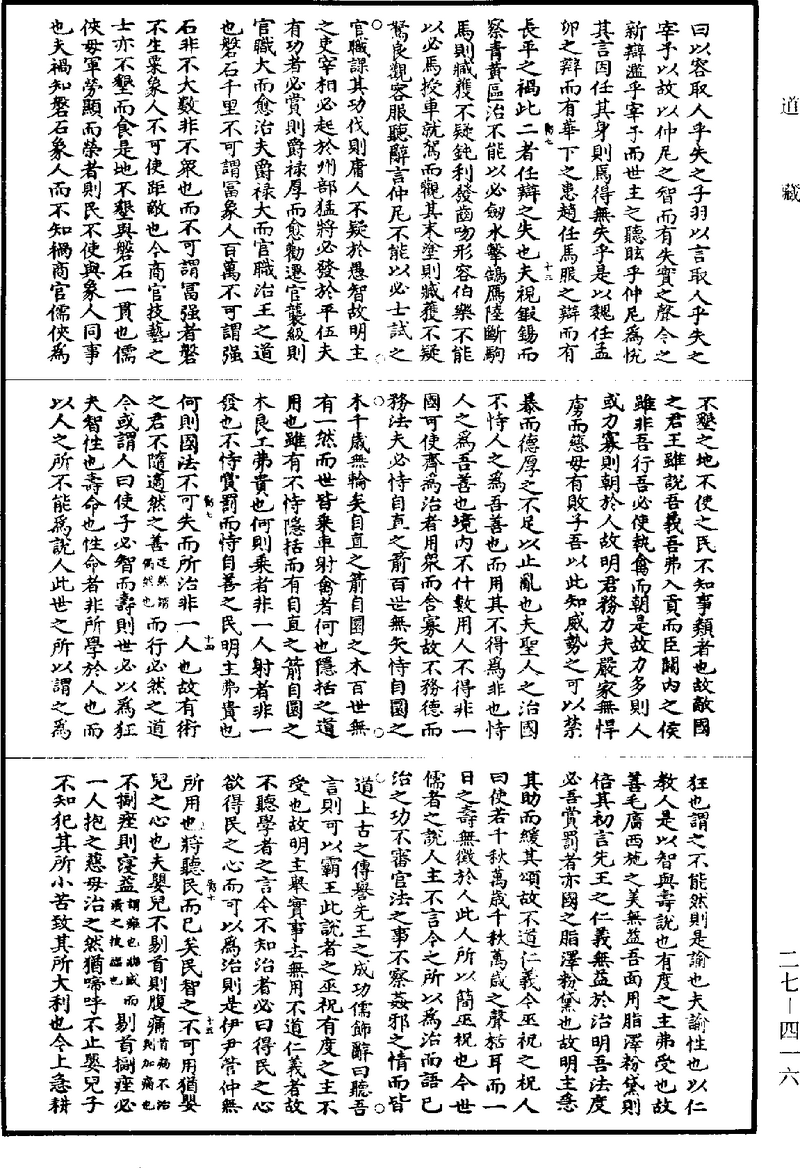 道藏
曰以容取人乎失之子羽以言取人乎失之
宰予以故以仲尼之智而有失實之聲今之
新辯濫乎宰予而世主之聽眩乎仲尼爲恱
其言因任其身則焉得無失乎是以魏任孟
卯之辯而有華下之患趙任馬服之辯而有
長平之禍此二者任辯之失也夫視鍛錫而
動七 十三
察青黃區冶不能以必劒水擊鵠鴈陸斷駒
馬則臧獲不疑鈍利發齒吻形容伯樂不能
以必馬授車就駕而觀其末塗則臧獲不疑
駑良觀容服聽辭言仲尼不能以必士試之
官職課其功伐則庸人不疑於愚智故明主
之吏宰相必起於州部猛將必發於卒伍夫
有功者必賞則爵禄厚而愈勸遷官襲級則
官職大而愈治夫爵禄大而官職治王之道
也磐石千里不可謂冨象人百萬不可謂强
石非不大數非不衆也而不可謂冨强者磐
不生粟象人不可使距敵也今商官技藝之
士亦不墾而食是地不墾與磐石一貫也儒
俠毋軍勞顯而榮者則民不使與象人同事
也夫禍知磐石象人而不知禍商官儒俠爲
不墾之地不使之民不知事類者也故敵國
之君王雖說吾義吾弗入貢而臣關内之侯
雖非吾行吾必使執禽而朝是故力多則人
或力寡則朝於人故明君務力夫嚴家無悍
虜而慈母有敗子吾以此知威勢之可以禁
暴而德厚之不足以止亂也夫聖人之治國
不恃人之爲吾善也而用其不得爲非也恃
人之爲吾善也境内不什數用人不得非一
國可使齊爲治者用衆而舍寡故不務德而
務法夫必恃自直之箭百世無矢恃自圜之
木千歳無輪矣自直之箭自圜之木百世無
有一然而世皆乗車射禽者何也隱栝之道
用也雖有不恃隱栝而有自直之箭自圜之
木良工弗貴也何則乗者非一人射者非一
發也不恃賞罰而恃自善之民明主弗貴也
動七 十四
何則國法不可失而所治非一人也故有術
之君不隨適然之善適然謂偶然也而行必然之道
今或謂人曰使子必智而壽則世必以爲狂
夫智性也壽命也性命者非所學於人也而
以人之所不能爲說人此世之所以謂之爲
狂也謂之不能然則是諭也夫諭性也以仁
教人是以智與壽說也有度之主弗受也故
善毛廧西施之美無益吾面用脂澤粉黛則
倍其初言先王之仁義無益於治明吾法度
必吾賞罰者亦國之脂澤粉黛也故明主急
其助而緩其頌故不道仁義今巫祝之祝人
曰使若千秋萬歳千秋萬歳之聲栝耳而一
日之壽無徵於人此人所以簡巫祝也今世
儒者之說人主不言今之所以爲治而語已
治之功不審官法之事不察姦邪之情而皆
道上古之傳譽先王之成功儒飾辭曰聽吾
言則可以霸王此説者之巫祝有度之主不
受也故明主舉實事去無用不道仁義者故
不聽學者之言今不知治者必曰得民之心
欲得民之心而可以爲治則是伊尹管仲無
動七 十五
所用也將聽民而已矣民智之不可用猶嬰
兒之心也夫嬰兒不剔首則腹痛首病不治則加痛也
不㨽痤則寖益剔首㨽痤必
一人抱之慈母治之然猶啼呼不止嬰兒子
不知犯其所小苦致其所大利也今上急耕
二七—四一六